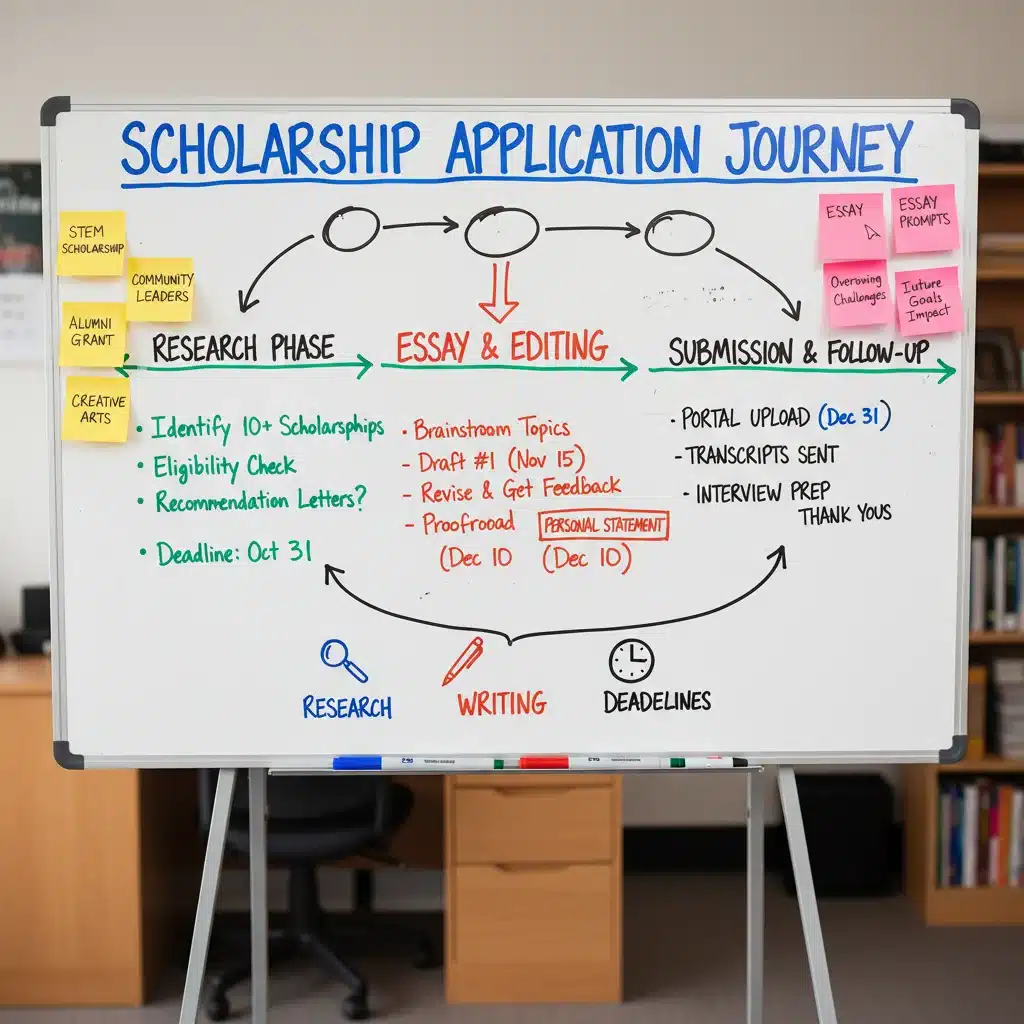 SCHOLARSHIP APPLICATION JOURNEY
STEM
SCHOLARSHIP
COMMUNITY
LEADERS
ALUMNI
GRANT
CREATIVE
ARTS
ESSAY
ESSAY
PROMPTS
Overoving
Challenges
Iuture
Goals
Impact
RESEARCH PHASE
• Identify 10+ Scholarsphips
• Eligibility Check
• Recommendation Letters?
• Deadline: Oct 31
ESSAY & EDITING
• Brainstroom Topics
- Draft #1 (Nov 15)
- Revise & Get Feedback
- Proofrooad PERSONAL STATEMENT
(Dec 10 (Dec 10)
SUBMISSION & FOLLOW-UP
• PORTAL UPLOAD (Dec 31)
- TRANSCRIPTS SENT
• INTERVIEW PREP
THANK YOUS
RESEARCH
WRITING
DEADELINES